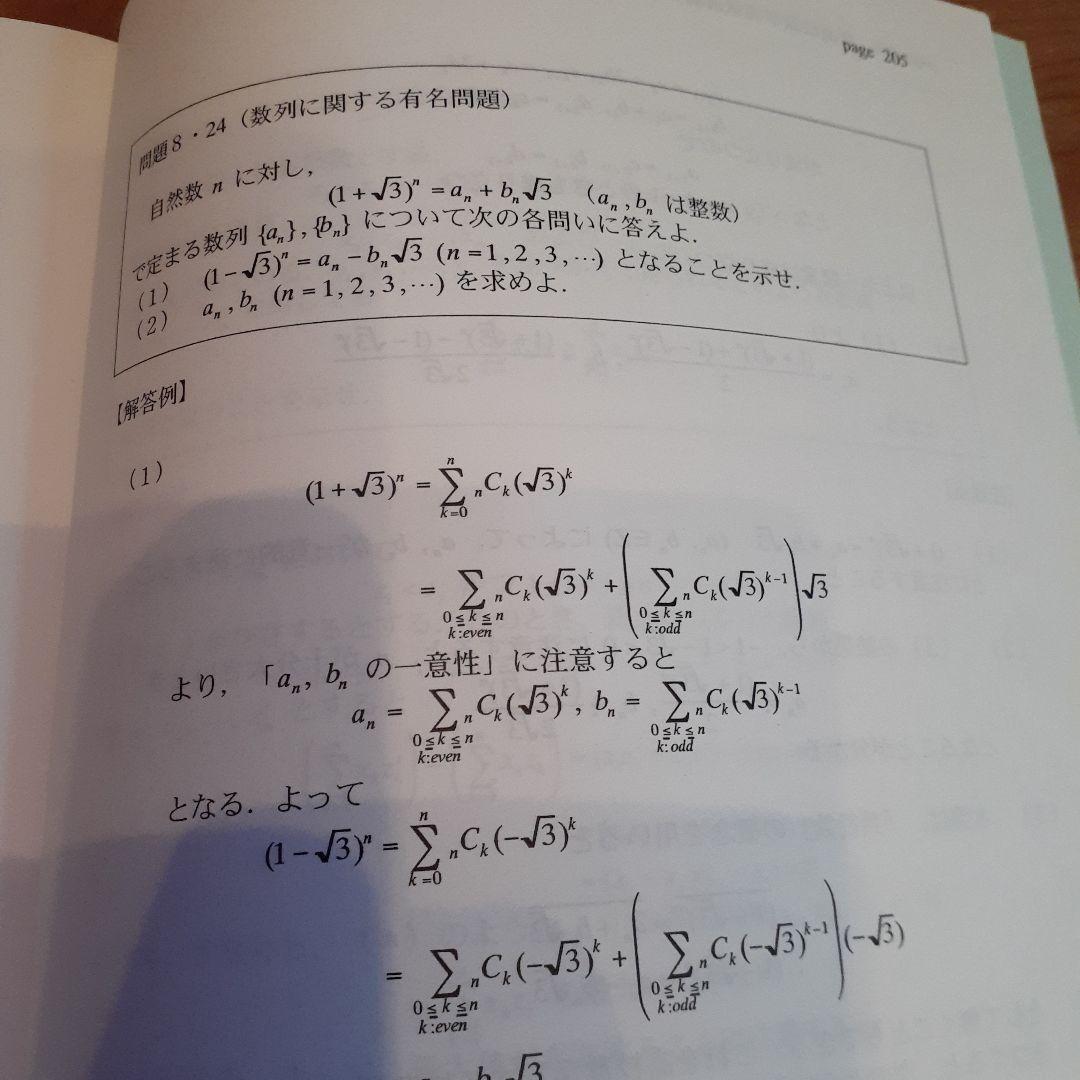 page 205
問題8・24（数列に関する有名問題）
自然数 n に対し，
(1+√3)^n = a_n + b_n√3 （a_n , b_n は整数）
で定まる数列 {a_n} , {b_n} について次の各問いに答えよ．
（1） (1−√3)^n = a_n − b_n√3 (n = 1, 2, 3, …) となることを示せ．
（2） a_n , b_n (n = 1, 2, 3, …) を求めよ．
【解答例】
（1）
(1+√3)^n = ∑_{k=0}^{n} _nC_k(√3)^k
= ∑_{0≦k≦n k:even} _nC_k(√3)^k + (∑_{0≦k≦n k:odd} _nC_k(√3)^{k−1})√3
より，「a_n, b_n の一意性」に注意すると
a_n = ∑_{0≦k≦n k:even} _nC_k(√3)^k , b_n = ∑_{0≦k≦n k:odd} _nC_k(√3)^{k−1}
となる．よって
(1−√3)^n = ∑_{k=0}^{n} _nC_k(−√3)^k
= ∑_{0≦k≦n k:even} _nC_k(−√3)^k + (∑_{0≦k≦n k:odd} _nC_k(−√3)^{k−1})(−√3)